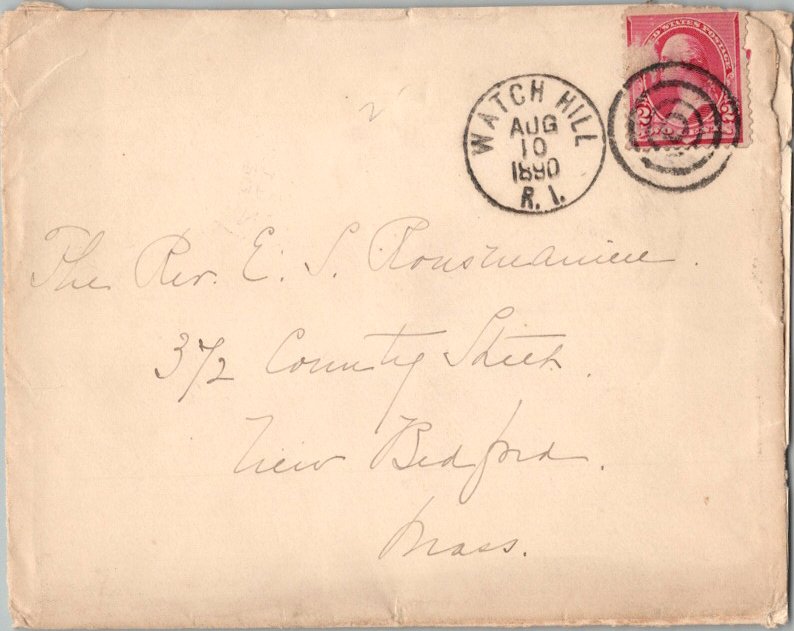 WATCH HILL
AUG
10
1890
R. I.
ED STATES POSTAGE
2 2
The Rev. E. S. Rousmaniere.
372 County Street.
New Bedford.
Mass.